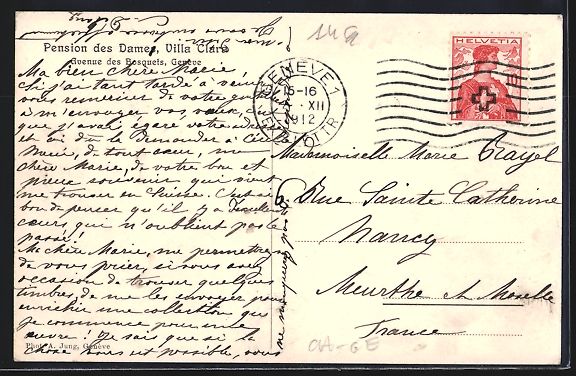 14 G
Pension des Dames, Villa Clara
Avenue des Bosquets, Genève
Ma bien chère Marie,
Si j'ai tant tardé à venir
vous remercier de votre
à m'envoyer vos vœux,
que j'avais égaré votre
et dû la demander à
Merci, de tout cœur, ma
chère Marie, de votre bon et
pieux souvenir qui vient
me trouver en Suisse. C'est si
bon de penser qu'il y a
cœurs qui n'oublient pas le
passé!
Ma chère Marie, me permettrez
de vous prier, si vous avez
occasion de trouver quelques
timbres, de me les envoyer pour
enrichir une collection que
je commence pour une
œuvre. Je sais que si la
chose vous est possible, vous
ne manquerez pas
Phot. A. Jung, Genève
GENÈVE 1
15-16
XII
1912
LETTR.
HELVETIA
Mademoiselle Marie Trayol
6 Rue Sainte Catherine
Nancy
Meurthe et Moselle
France
CH-GE